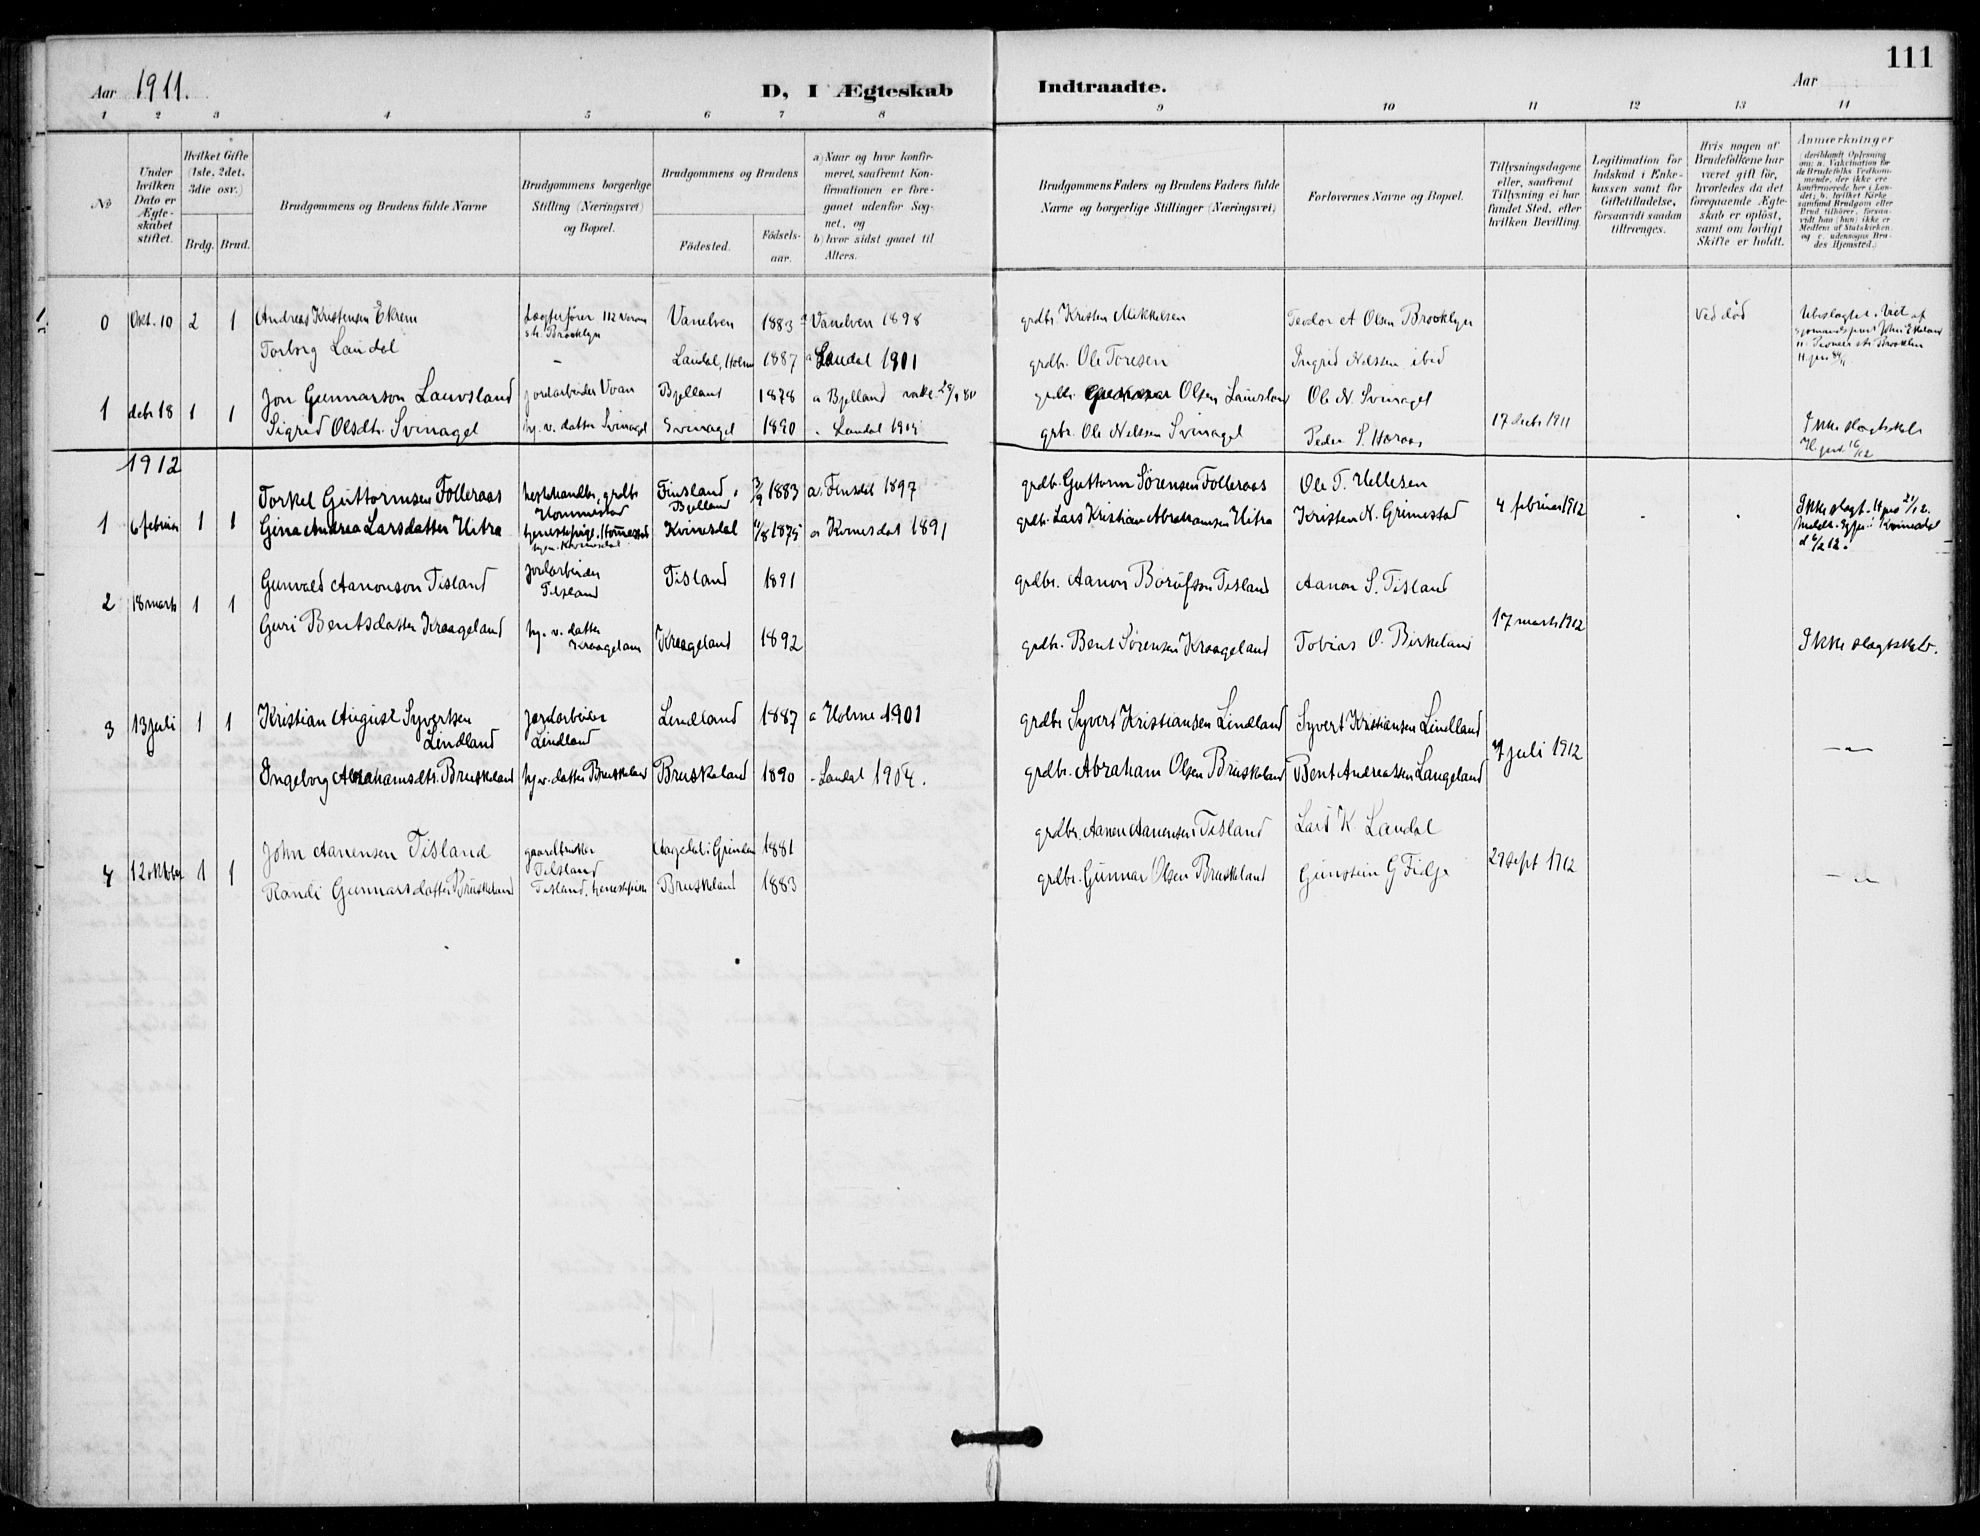 111
Aar 1911.
D, I Ægteskab
Indtraadte.
Aar
1 2 3 4 5 6 7 8 9 10 11 12 13 14
No
Under hvilken Dato er Ægteskabet stiftet.
Hvilket Gifte (1ste, 2det, 3die osv.)
Brdg. Brud.
Brudgommens og Brudens fulde Navne
Brudgommens borgerlige Stilling (Næringsvei) og Bopæl.
Brudgommens og Brudens
Födested.
Födselsaar.
a) Naar og hvor konfirmeret, saafremt Konfirmationen er foregaaet udenfor Sognet, og
b) hvor sidst gaaet til Alters.
Brudgommens Faders og Brudens Faders fulde Navne og borgerlige Stillinger (Næringsvei)
Forlovernes Navne og Bopæl.
Tillysningsdagene eller, saafremt Tillysning ei har fundet Sted, efter hvilken Bevilling.
Legitimation for Indskud i Enkekassen samt for Giftetilladelse, forsaavidt saadan tiltrænges.
Hvis nogen af Brudefolkene har været gift för, hvorledes da det foregaaende Ægteskab er oplöst, samt om lovligt Skifte er holdt.
Anmærkninger
0 Okt. 10 2 1 Andreas Kristensen Ekrem Vanelven 1883 a Vanelven 1898 grdbr. Kristen Mikkelsen Teodor A Olsen Brooklyn ved död
str. Brooklyn
Torborg Laudal - Laudal, Holme 1887 a Laudal 1901 grdbr. Ole Toresen Ingrid Nelssen ibid
1 decbr 18 1 1 Jon Gunnarson Lauvsland jordarbeider Voan Bjelland 1878 a Bjelland grdbr. Gunnar Olsen Lauvsland Ole N. Svinagel
Sigrid Olsdtr. Svinagel hj. v. datter Svinagel Svinagel 1890 Laudal 1904 grbr. Ole Nelssen Svinagel Peder S. Haraas 17 decbr 1911 Ikke slægtskab
1912
1 6 februar 1 1 Torkel Guttormsen Folleraas hestehandler, grdbr Hommestad Finsland, Bjelland 3/9 1883 a. Finsdal 1897 grdbr. Guttorm Sörensen Folleraas Ole T. Hellesen
Gina Andrea Larsdatter Hitra tjenestepige, Hommestad Kvinesdal 1/8 1875 a Kvinesdal 1891 grdbr. Lars Kristian Abrahamsen Hitra Kristen N. Grimestad 4 februar 1912 - - Ikke slægt.
2 18 marts 1 1 Gunvald Aanonson Tisland jordarbeider Tisland Tisland 1891 grdbr. Aanon Borufson Tisland Aanon S. Tisland
Guri Bentsdatter Kraageland hj. v. datter Kraageland Kraageland 1892 grdbr. Bent Sörensen Kraageland Tobias O. Birkeland 17 marts 1912 Ikke slægtskab.
3 13 juli 1 1 Kristian August Syvertsen Lindland jordarbeider Lindland Lindland 1887 a Holme 1901 grdbr Syvert Kristiansen Lindland Syvert Kristiansen Lindland
Ingeborg Abrahamsdtr. Bruskeland hj. v. datter Bruskeland Bruskeland 1890 - Laudal 1904. grdbr. Abraham Olsen Bruskeland Bent Andreassen Langeland 7 juli 1912 -"-
4 12 oktober 1 1 John Aanensen Tisland gaardbruker Tisland Aagedal i Grindem 1881 grdbr. Aanen Aanensen Tisland Lars K. Laudal
Randi Gunnarsdatter Bruskeland Tisland, tjenestepike Bruskeland 1883 grdbr. Gunnar Olsen Bruskeland Gunstein G Fidje 29 sept 1912 -"-